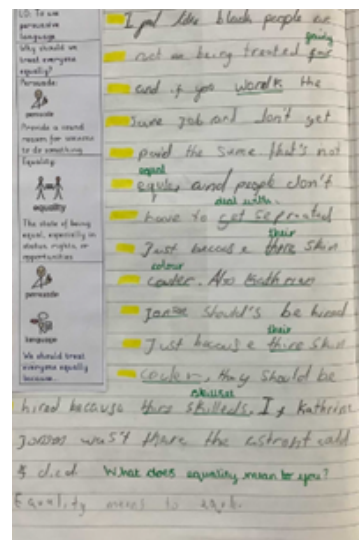 LO: To use
persuasive
language
Why should we
treat everyone
equally?
Persuade:
persuade
Provide a sound
reason for someone
to do something
Equality:
equality
The state of being
equal, especially in
status, rights, or
opportunities
persuade
language
We should treat
everyone equally
because...
I feel like black people are
fairly
not being treated
and if you wordk the
same job and don't get
paid the same that's not
equal
and people don't
deal with
have to get seprated
their
Just becaus e there skin
colour
couler. Also Kathrean
Jonson should's be hired
their
Just becaus e thire skin
couler, they should be
skillset
hired because thire skilleds. If Kathrine
Jonson was't there the
died What does equality mean to you?
Equality means to